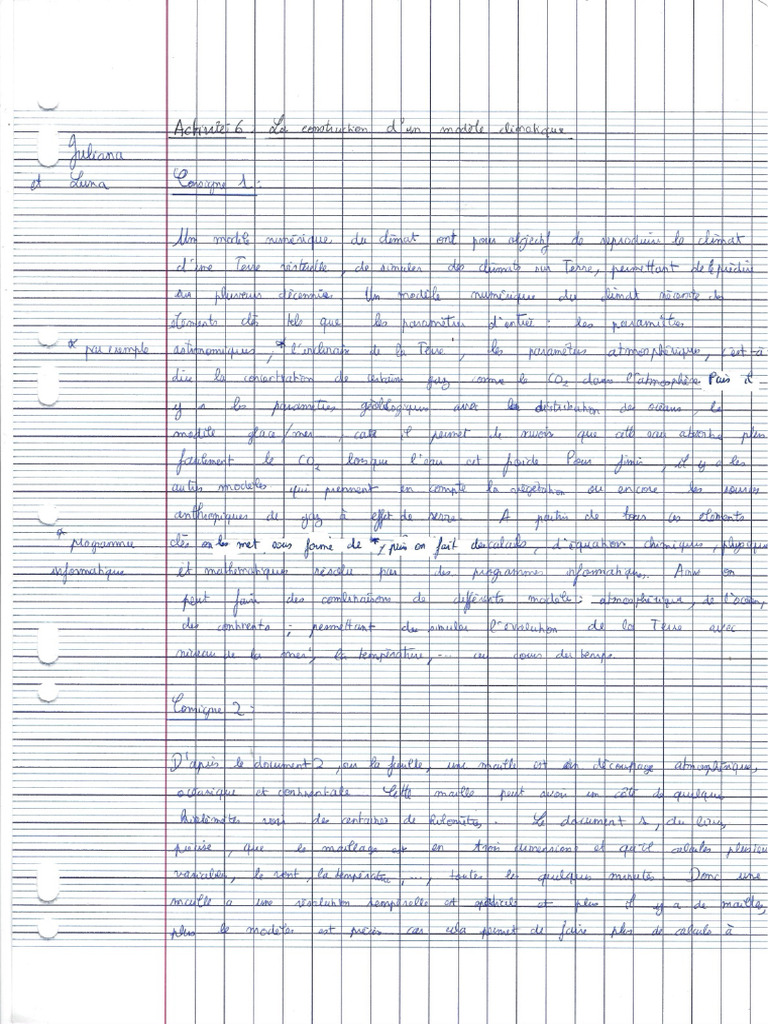 Activité 6. La construction d'un modèle climatique
Juliana
et Luna
Consigne 1 :
Un modèle numérique du climat ont pour objectif de reproduire le climat
d'une Terre virtuelle, de simuler des climats sur Terre, permettant de le prédire
sur plusieurs décennies. Un modèle numérique du climat nécessite des
éléments clés tels que les paramètres d'entrée : les paramètres
* par exemple
astronomiques, * l'inclinaison de la Terre, les paramètres atmosphériques, c'est-à
dire la concentration de certains gaz comme le CO2 dans l'atmosphère. Puis il
y a les paramètres géologiques avec la distribution des océans, le
modèle glace/mer, il permet de savoir que absorbe plus
facilement le CO2 lorsque l'eau est froide. Pour finir, il y a les
autres modèles qui prennent en compte la végétation ou encore les sources
anthropiques de gaz à effet de serre. A partir de tous ces éléments
* programme
informatique
clés on les met sous forme de *, puis on fait des calculs, d'équation chimiques, physique
et mathématiques résolu par des programmes informatiques. Ainsi on
peut faire des combinaisons de différents modèle : atmosphérique, de l'océan,
des continents ; permettant de simuler l'évolution de la Terre avec
niveau de la mer, la température, ... au cours du temps.
Consigne 2 :
D'après le document 2, sur la feuille, une maille est un découpage atmosphérique,
océanique et continentale. Cette maille peut avoir un côté de quelque
kilomètres vers des centaines de kilomètres. Le document 1, du livre,
précise, que le maillage est en trois dimensions et qu'il calcules plusieurs
variables, le vent, la température, ..., toutes les quelques minutes. Donc une
maille a une résolution temporelle et spatiale et plus il y a de mailles,
plus le modèle est précis car cela permet de faire plus de calculs à